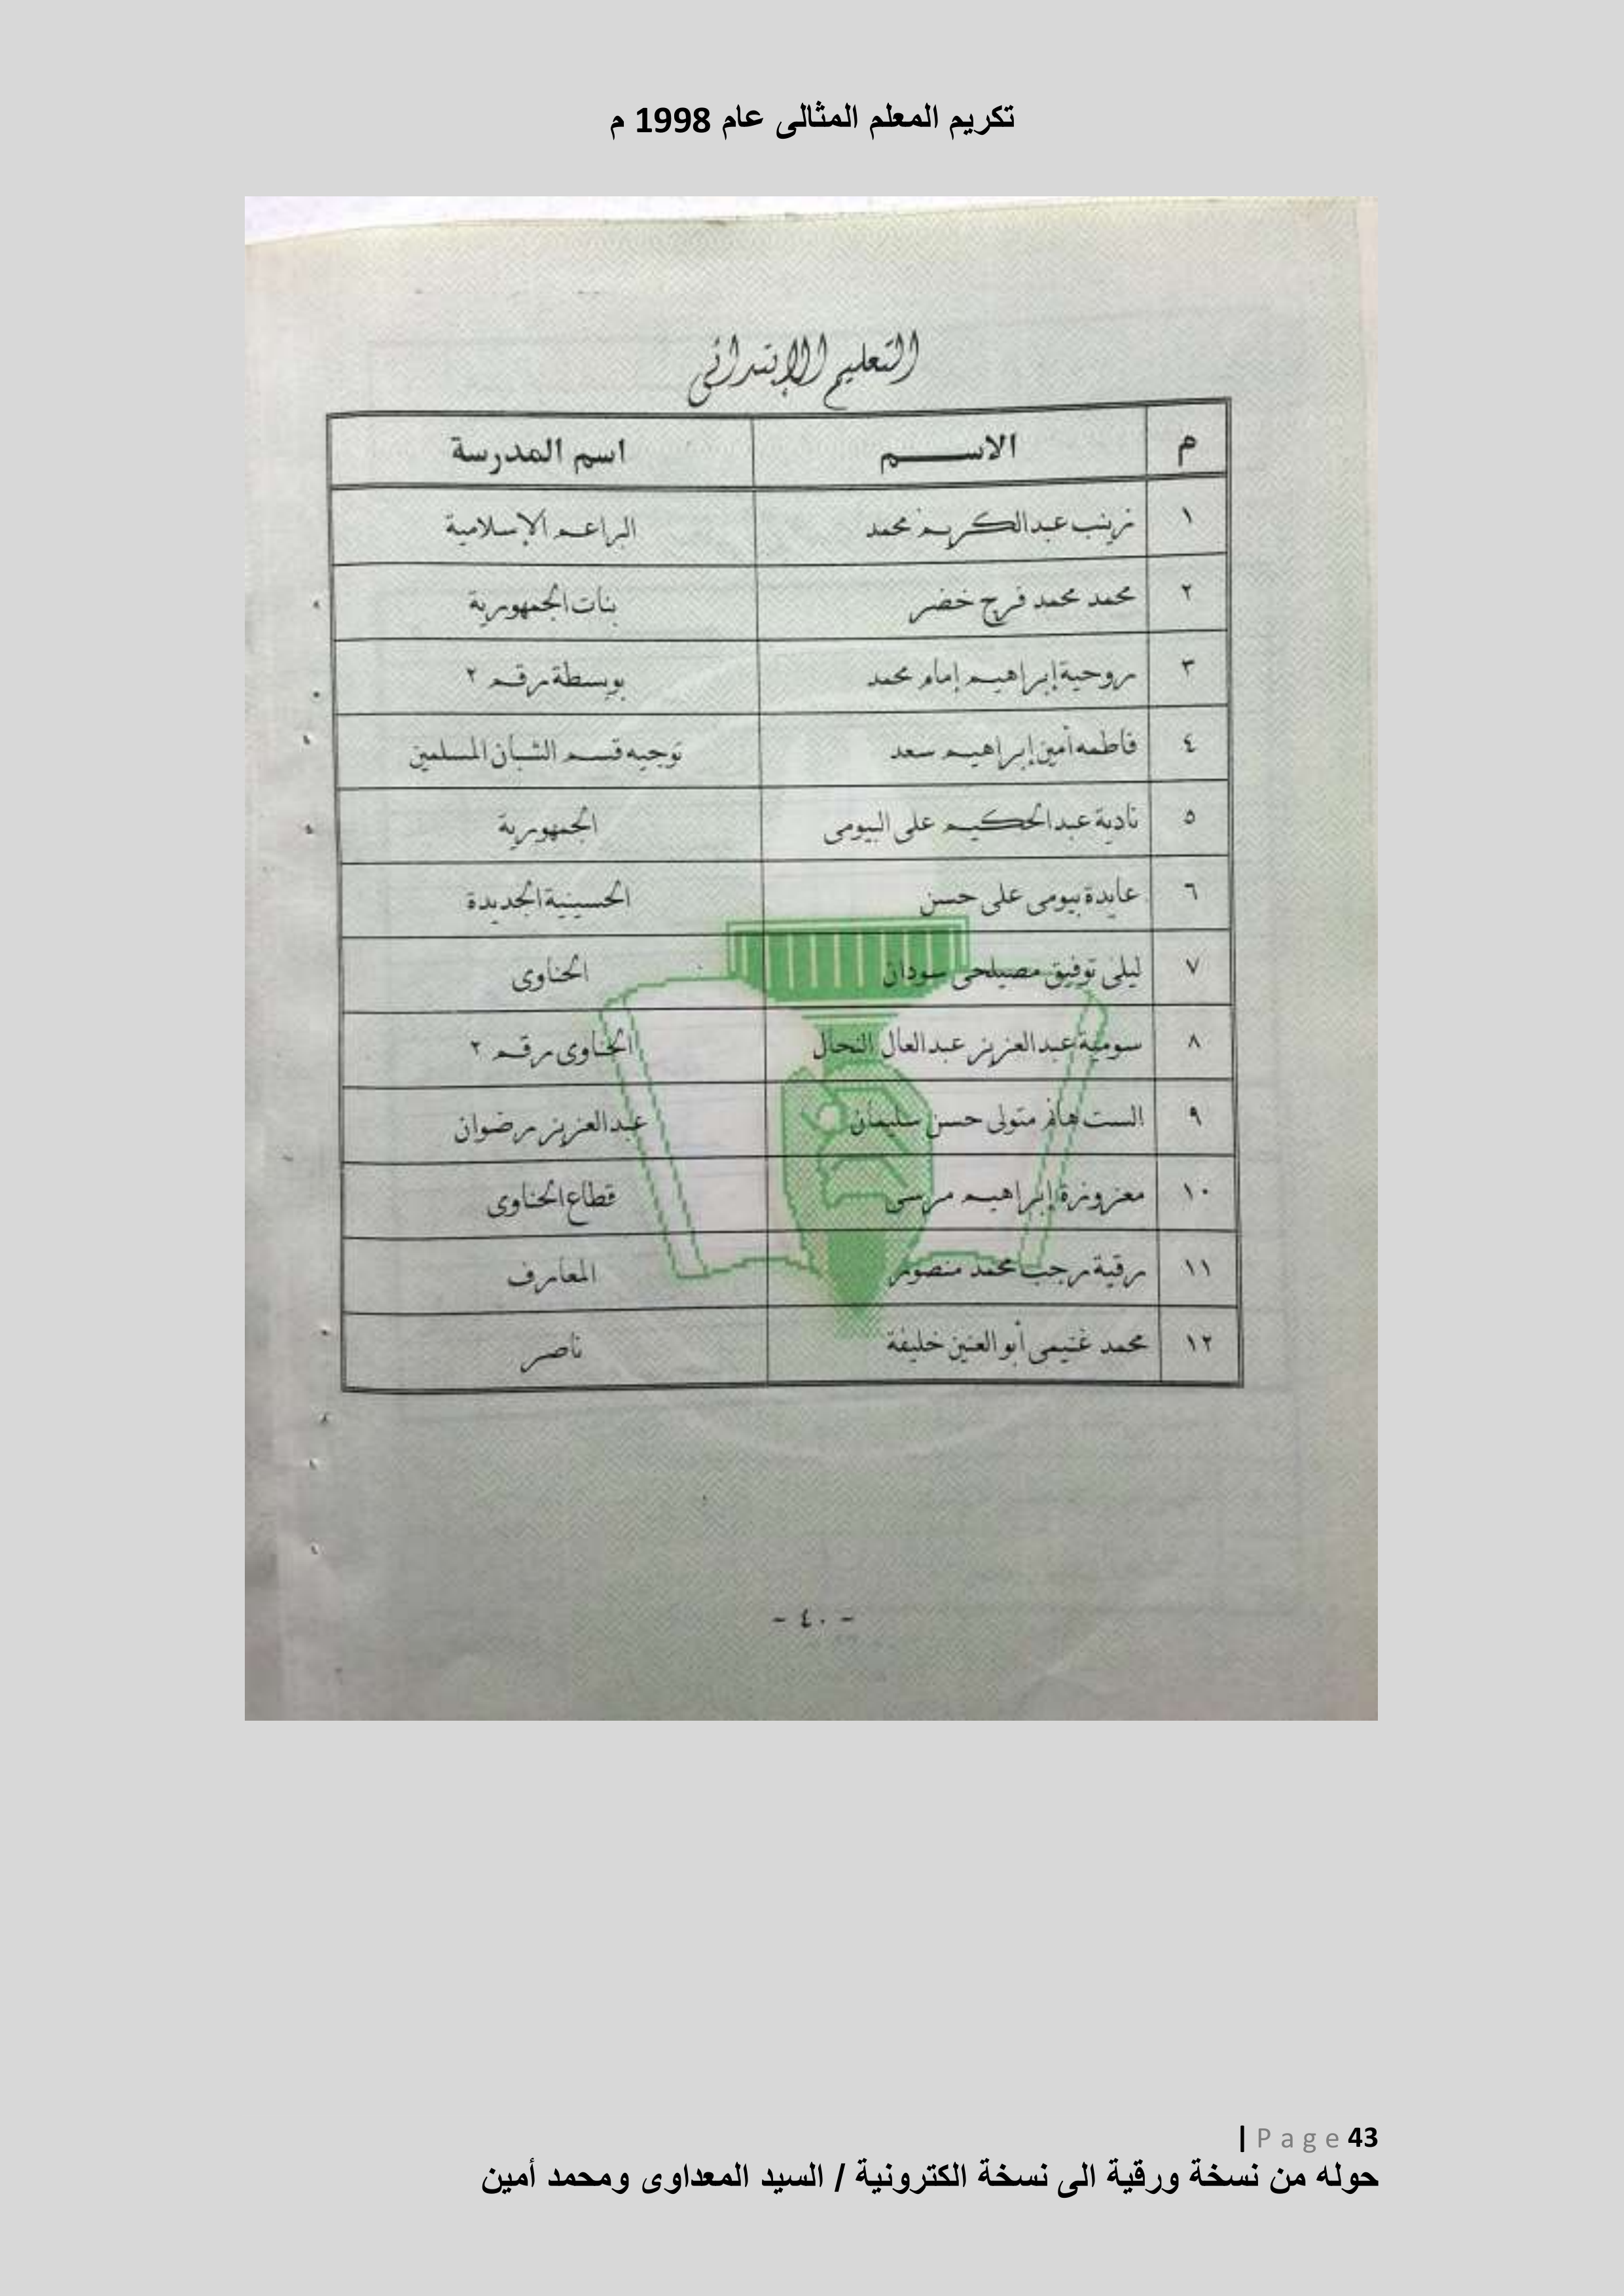 تكريم المعلم المثالى عام 1998 م
التعليم الإبتدائى
م الاســـــم اسم المدرسة
١ زينب عبد الكريم محمد البراعم الإسلامية
٢ محمد محمد فرج خضر بنات الجمهورية
٣ روحية إبراهيم إمام محمد بويسطة رقم ٢
٤ فاطمه أمين إبراهيم سعد توجيه قسم الشبان المسلمين
٥ نادية عبد الحكيم على البيومى الجمهورية
٦ عايدة بيومى على حسن الحسينية الجديدة
٧ ليلى توفيق مصيلحى سودان الحناوى
٨ سومية عبد العزيز عبد العال النحال الحناوى رقم ٢
٩ الست هانم متولى حسن سليمان عبد العزيز رضوان
١٠ معزوزة إبراهيم مرسى قطاع الحناوى
١١ رقية رجب محمد منصور المعارف
١٢ محمد غنيمى أبو العنين خليفة ناصر
- ٤٠ -
| Page 43
حوله من نسخة ورقية الى نسخة الكترونية / السيد المعداوى ومحمد أمين